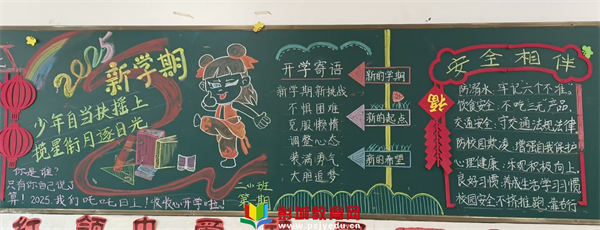 2025
新学期
少年自当扶摇上
揽星衔月逐日光
你是谁？
只有你自己说了
算！2025.我们吒吒日上！收收心开学啦！
二小班
第一期
开学寄语
新学期新挑战
不惧困难
克服懒惰
调整心态
装满勇气
大胆追梦
新的学期
新的起点
新的希望
安全相伴
福
防溺水，牢记六个不准。
饮食安全，不吃三无产品。
交通安全，守交通法规法律。
防校园欺凌，增强自我保护
心理健康：乐观积极向上。
良好习惯：养成生活学习惯
校园安全不挤推跑，靠右行
彭城教育网
www.pcjyedu.cn
红领巾爱